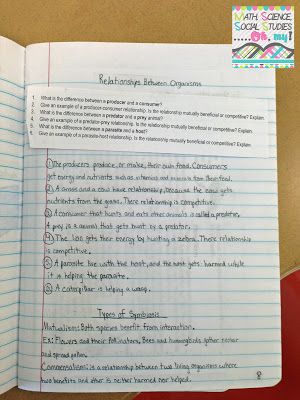 MATH, SCIENCE,
SOCIAL STUDIES
...oh, my!
Relationships Between Organisms
1. What is the difference between a producer and a consumer?
2. Give an example of a producer-consumer relationship. Is the relationship mutually beneficial or competitive? Explain.
3. What is the difference between a predator and a prey animal?
4. Give an example of a predator-prey relationship. Is the relationship mutually beneficial or competitive? Explain.
5. What is the difference between a parasite and a host?
6. Give an example of a parasite-host relationship. Is the relationship mutually beneficial or competitive? Explain.
① The producers produce, or make, their own food. Consumers
get energy and nutrients such as vitamins and minerals from their food.
② A grass and a cow have relationship, because the cow gets
nutrients from the grass. There relationship is competitive.
③ A consumer that hunts and eats other animals is called a predator.
A prey is a animal that gets hunt by a predator.
④ The lion gets their energy by hunting a zebra. There relationship
is competitive.
⑤ A parasite live with the host, and the host gets harmed while
it is helping the parasite.
⑥ A caterpillar is helping a wasp.
Types of Symbiosis
Mutualism: Both species benefit from interaction.
Ex: Flowers and their Pollinators, Bees and hummingbirds gather nectar
and spread pollen.
Commensalism: is a relationship between two living organisms where
one benefits and other is neither harmed nor helped.